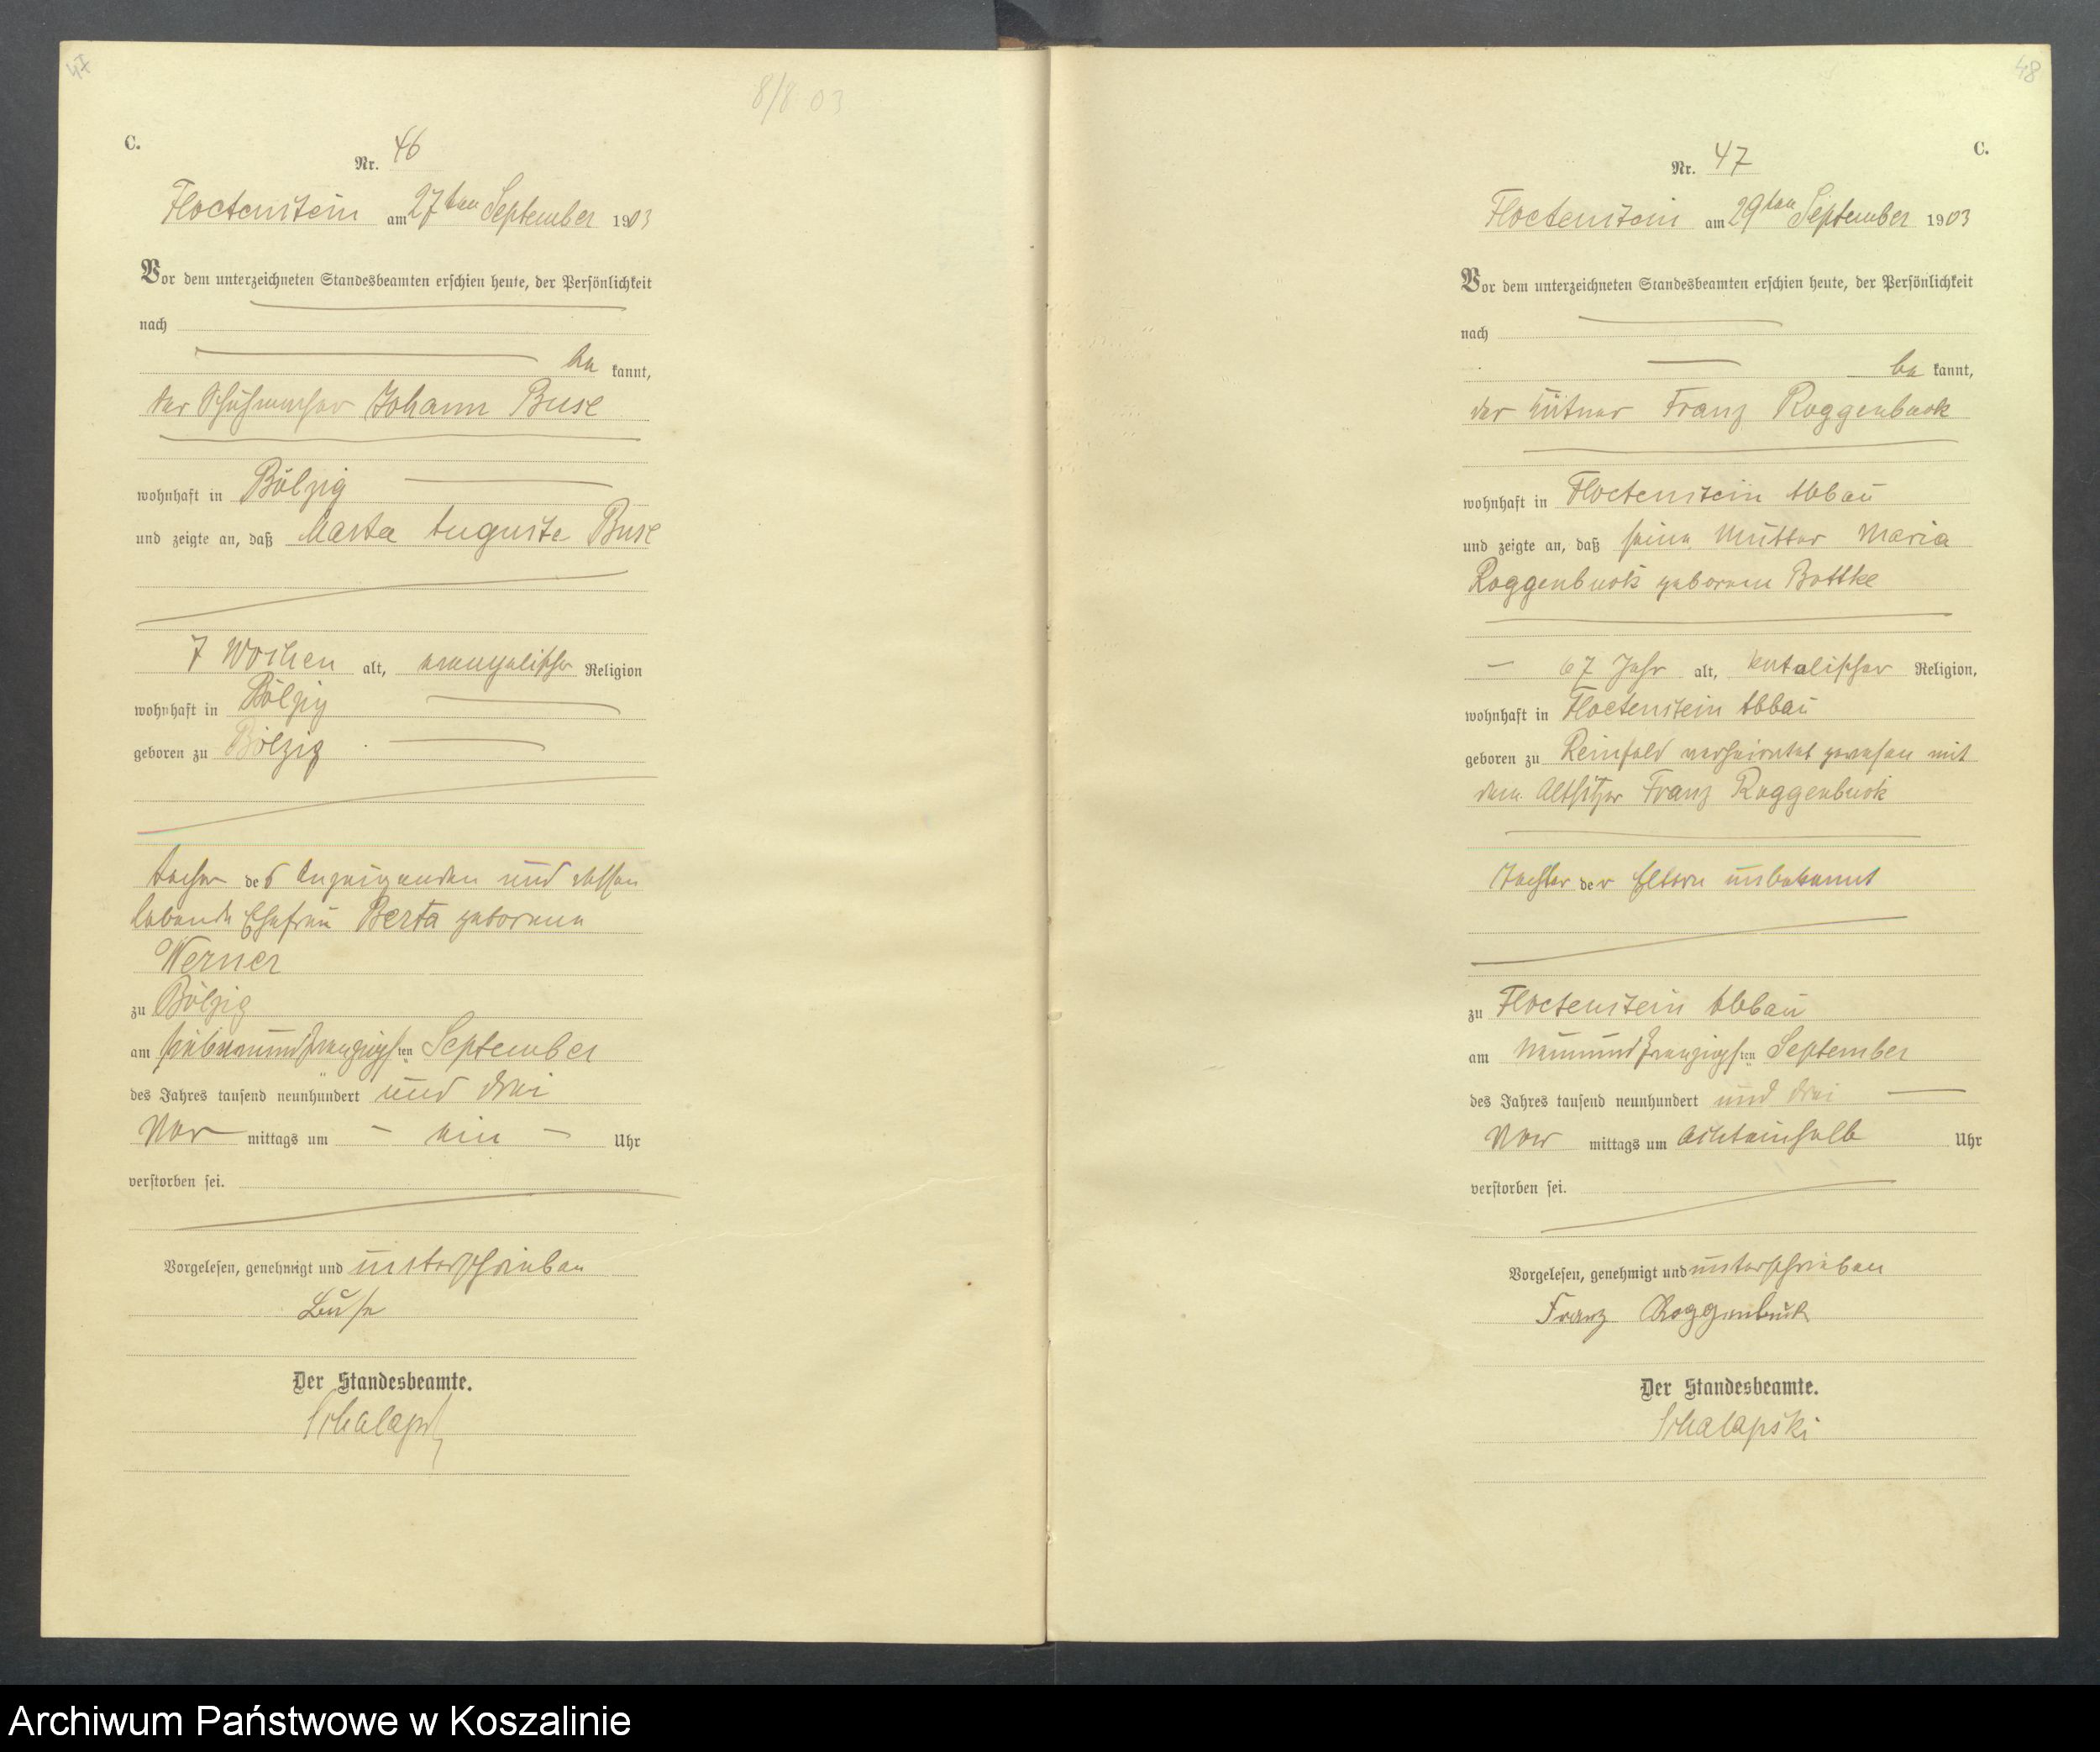 47
8/8 03
C.
Nr. 46
Floetenstein am 27ten September 1903
Vor dem unterzeichneten Standesbeamten erschien heute, der Persönlichkeit
nach
be kannt,
der Schuhmacher Johann Buse
wohnhaft in Bölzig
und zeigte an, daß Marta Auguste Buse
7 Wochen alt, evangelischer Religion
wohnhaft in Bölzig
geboren zu Bölzig
de s Anzeigenden und dessen
lebende Ehefrau Berta geborene
Werner
zu Bölzig
am siebenundzwanzigsten September
des Jahres tausend neunhundert und drei
Vor mittags um – ein – Uhr
verstorben sei.
Vorgelesen, genehmigt und unterschrieben
Buse
Der Standesbeamte.
Schalapski
48
C.
Nr. 47
Floetenstein am 29ten September 1903
Vor dem unterzeichneten Standesbeamten erschien heute, der Persönlichkeit
nach
be kannt,
der Franz Roggenbuck
wohnhaft in Floetenstein Abbau
und zeigte an, daß seine Mutter Maria
Roggenbuck geborene Bottke
– 67 Jahr alt, katolischer Religion,
wohnhaft in Floetenstein Abbau
geboren zu Reinfeld verheiratet gewesen mit
dem Altsitzer Franz Roggenbuck
Tochter der Eltern unbekannt
zu Floetenstein Abbau
am neunundzwanzigsten September
des Jahres tausend neunhundert und drei
Vor mittags um achteinhalb Uhr
verstorben sei.
Vorgelesen, genehmigt und unterschrieben
Franz Roggenbuck
Der Standesbeamte.
Schalapski
Archiwum Państwowe w Koszalinie